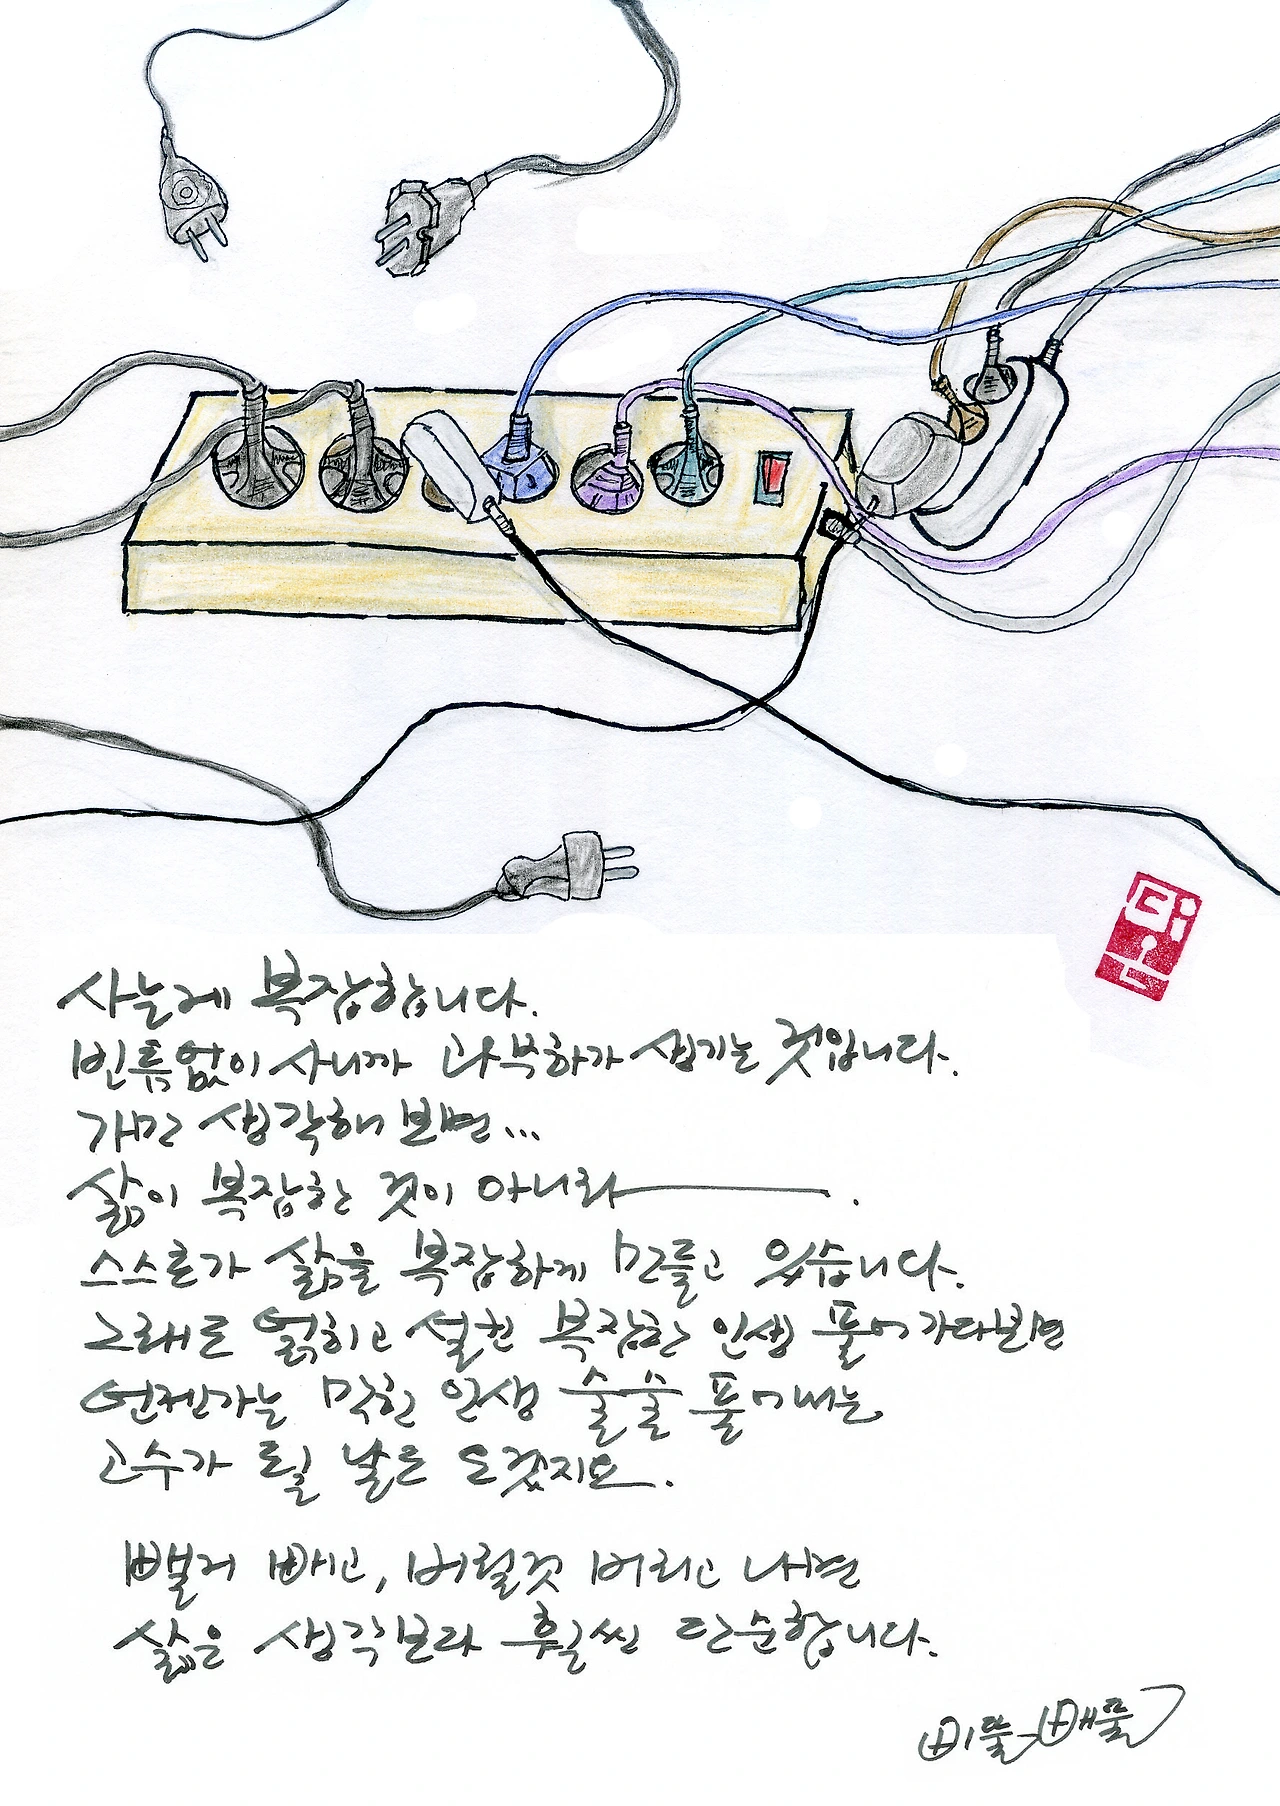 사는게 복잡합니다.
빈틈없이 사니까 과부하가 생기는 것입니다.
가만 생각해 보면...
삶이 복잡한 것이 아니라 .
스스로가 삶을 복잡하게 만들고 있습니다.
그래도 얽히고 설킨 복잡한 인생 풀어 가다보면
언젠가는 막힌 인생 술술 풀어내는
고수가 될 날도 오겠지요.
뺄거 빼고, 버릴것 버리고 나면
삶은 생각보다 훨씬 단순합니다.
삐뚤빼뚤